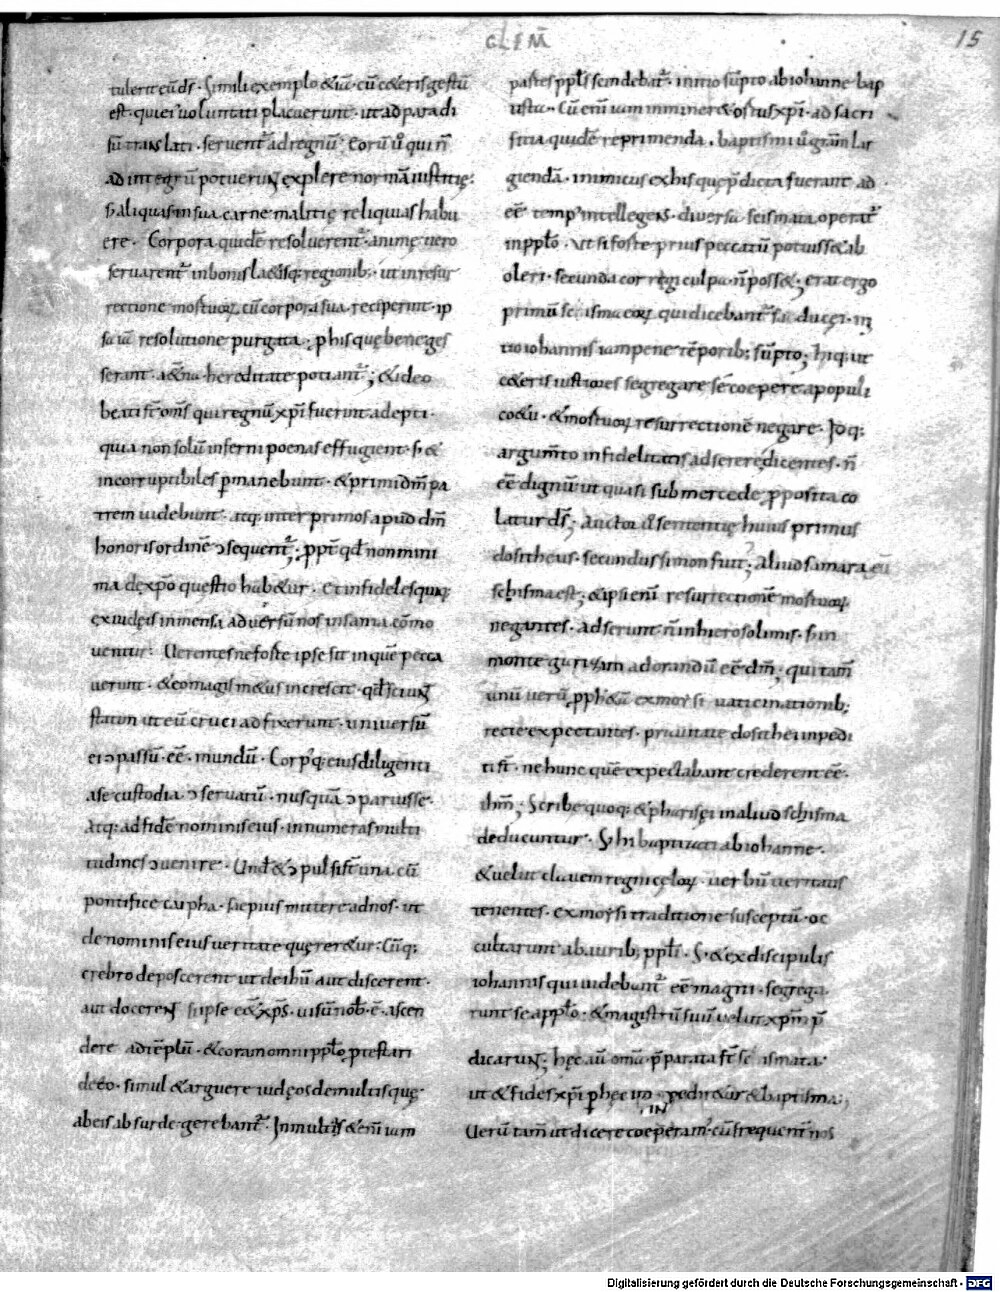 CLEM̄
15
tulerit eū ds̄· Simili exemplo &iā cū c&eris gestū
est· qui ei' uoluntati placuerunt· ut ad paradi
sū translati· seruent̄ ad regnū; Eorū ů qui n̄
ad integrū potuerun̄t explere normā iustitię·
s; aliquas in sua carne malitię reliquias habu
ere· Corpora quidē resoluerent̄· animę uero
seruarent̄ in bonis l&isq; regionib;· ut in resur
rectione mortuoꝝ cū corpora sua reciperint· ip
sa iā resolutione purgata· ꝓ his quę bene ges
serant· &erna hereditate potiant̄; & ideo
beati st̄ om̄s qui regnū xp̄i fuerint adepti·
quia non solū inferni poenas effugient· s; &
incorruptibiles ꝑmanebunt· & primi dm̄ pa
trem uidebunt· atq; inter primos apud dm̄
honoris ordinē ɔsequent̄; ꝓpt̄ qđ non mini
ma de xp̄o questio hab&ur· Et infideles quiq;
ex iudeis inmensa aduersū nos insania cōmo
uentur· Uerentes ne forte ipse sit in quē pecca
uerunt· & eo magis m&us increscit· qđ sciun̄t
statim ut eū cruci adfixerunt· uniuersū
ei ɔpassū· eē· mundū· Corp'q; eius diligenti
a se custodia ɔseruatū· nusquā ɔparuisse·
Atq; ad fidē nominis eius· innumeras multi
tudines ɔuenire· Und& ɔpulsi st̄ una cū
pontifice caipha· sepius mittere ad nos· ut
de nominis eius ueritate quęrer&ur· Cūq;
crebro deposcerent ut de ihū aut discerent·
aut docerent si ipse eēt xp̄s· uisū nob̄· ē· ascen
dere ad tēplū· & coram omni pplō ꝓtestari
de eo· simul & arguere iudęos de multis quę
ab eis absurde gerebant̄· In multis &enī iam
partes ppl̄s scindebat̄· initio sūpto ab iohanne bap
tista· Cū enī iam inminer& ortus xp̄i· ad sacri
ficia quidē reprimenda· baptismi ů gr̄am lar
giendā· inimicus ex his quę p̄dicta fuerant ad
eē temp' intellegens· diuersa scismata operat̄
in pplō· Ut si forte prius peccatū potuiss& ab
oleri· secunda corrigi culpa n̄ poss&; erat ergo
primū scisma eoꝝ qui dicebant̄ saducei· in
itio iohannis iam pene tēporib; sūpto; hiq; ut
c&eris iustiores segregare sē coepere a populi
co&u· & mortuoꝝ resurrectionē negare· Idq;
argum̄to infidelitatis adserere dicentes· n̄
eē dignū ut quasi sub mercede ꝓposita co
latur ds̄; Auctor ů sententię huius primus
dositheus· secundus simon fuit; Aliud samaraeū
schisma est; & ipsi enī resurrectionē mortuoꝝ
negantes· adserunt n̄ in hierosolimis· s; in
monte garizim adorandū eē dm̄; qui tam̄
unū uerū ꝓph&ā ex moysi uaticinationib;
recte expectantes· prauitate dosithei inpedi
ti st̄· ne hunc quē expectabant crederent eē·
ihm̄; Scribę quoq; & pharisęi in aliud schisma
deducuntur· S; hi baptizati ab iohanne·
& uelut clauem regni cęloꝝ· uerbū ueritatis
tenentes· ex moysi traditione susceptū· oc
cultarunt ab aurib; ppl̄i· S; & ex discipulis
iohannis qui uidebant̄ eē magni· segrega
runt se a pplō· & magistrū suū uelut xp̄m p̄
dicarun̄t; hęc aū om̄a p̄parata st̄ scismata·
ut & fides xp̄i ꝑ hęc inpedir&ur & baptisma;
Uerū tam̄ ut dicere coeperam' cū frequent̄ nos
Digitalisierung gefördert durch die Deutsche Forschungsgemeinschaft · DFG